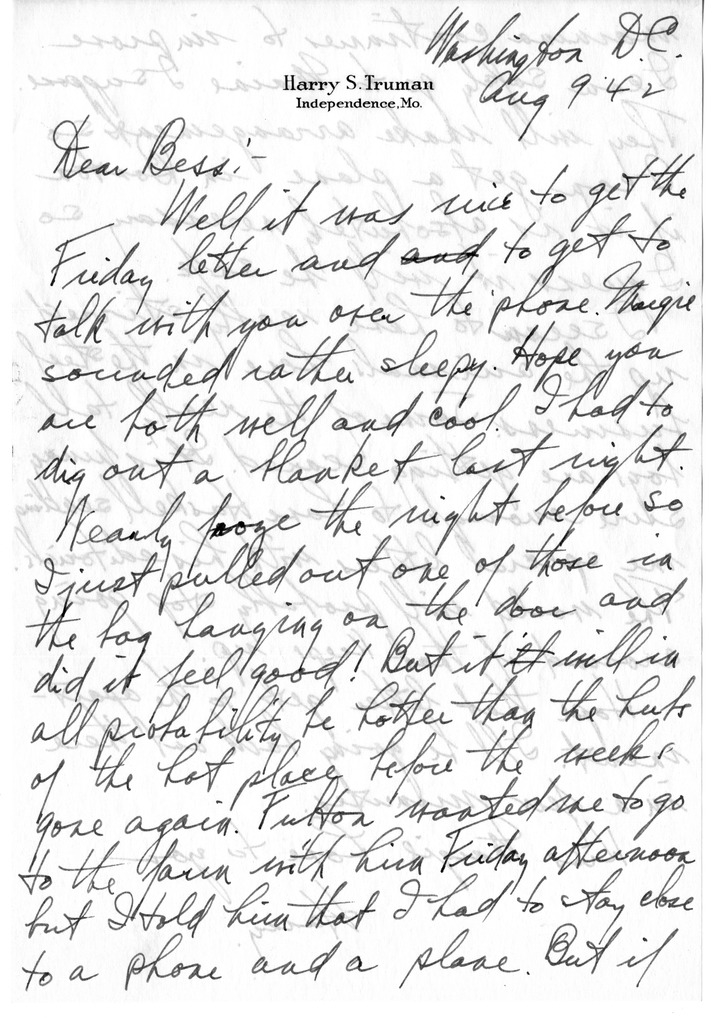 Washington D.C.
Harry S. Truman
Independence, Mo.
Aug 9 '42
Dear Bess:-
Well it was nice to get the
Friday letter and and to get to
talk with you over the phone. Margie
sounded rather sleepy. Hope you
are both well and cool. I had to
dig out a blanket last night.
Nearly froze the night before so
I just pulled out one of those in
the bag hanging on the door and
did it feel good! But it it will in
all probability be hotter than the hubs
of the hot place before the weeks
gone again. Fulton wanted me to go
to the farm with him Friday afternoon
but I told him that I had to stay close
to a phone and a plane. But if